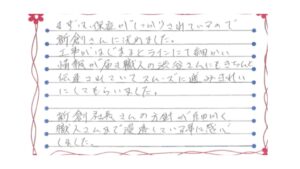 まず、保証がしっかりされているので
新創さんに決めました。
工事がはじまるとラインにて細かい
情報が届き職人の渋谷さんにもきちんと
伝達されていてスムーズに進みきれい
にしてもらいました。
新創社長さんの方針が細かく
職人さんまで浸透している事に感心
しました。